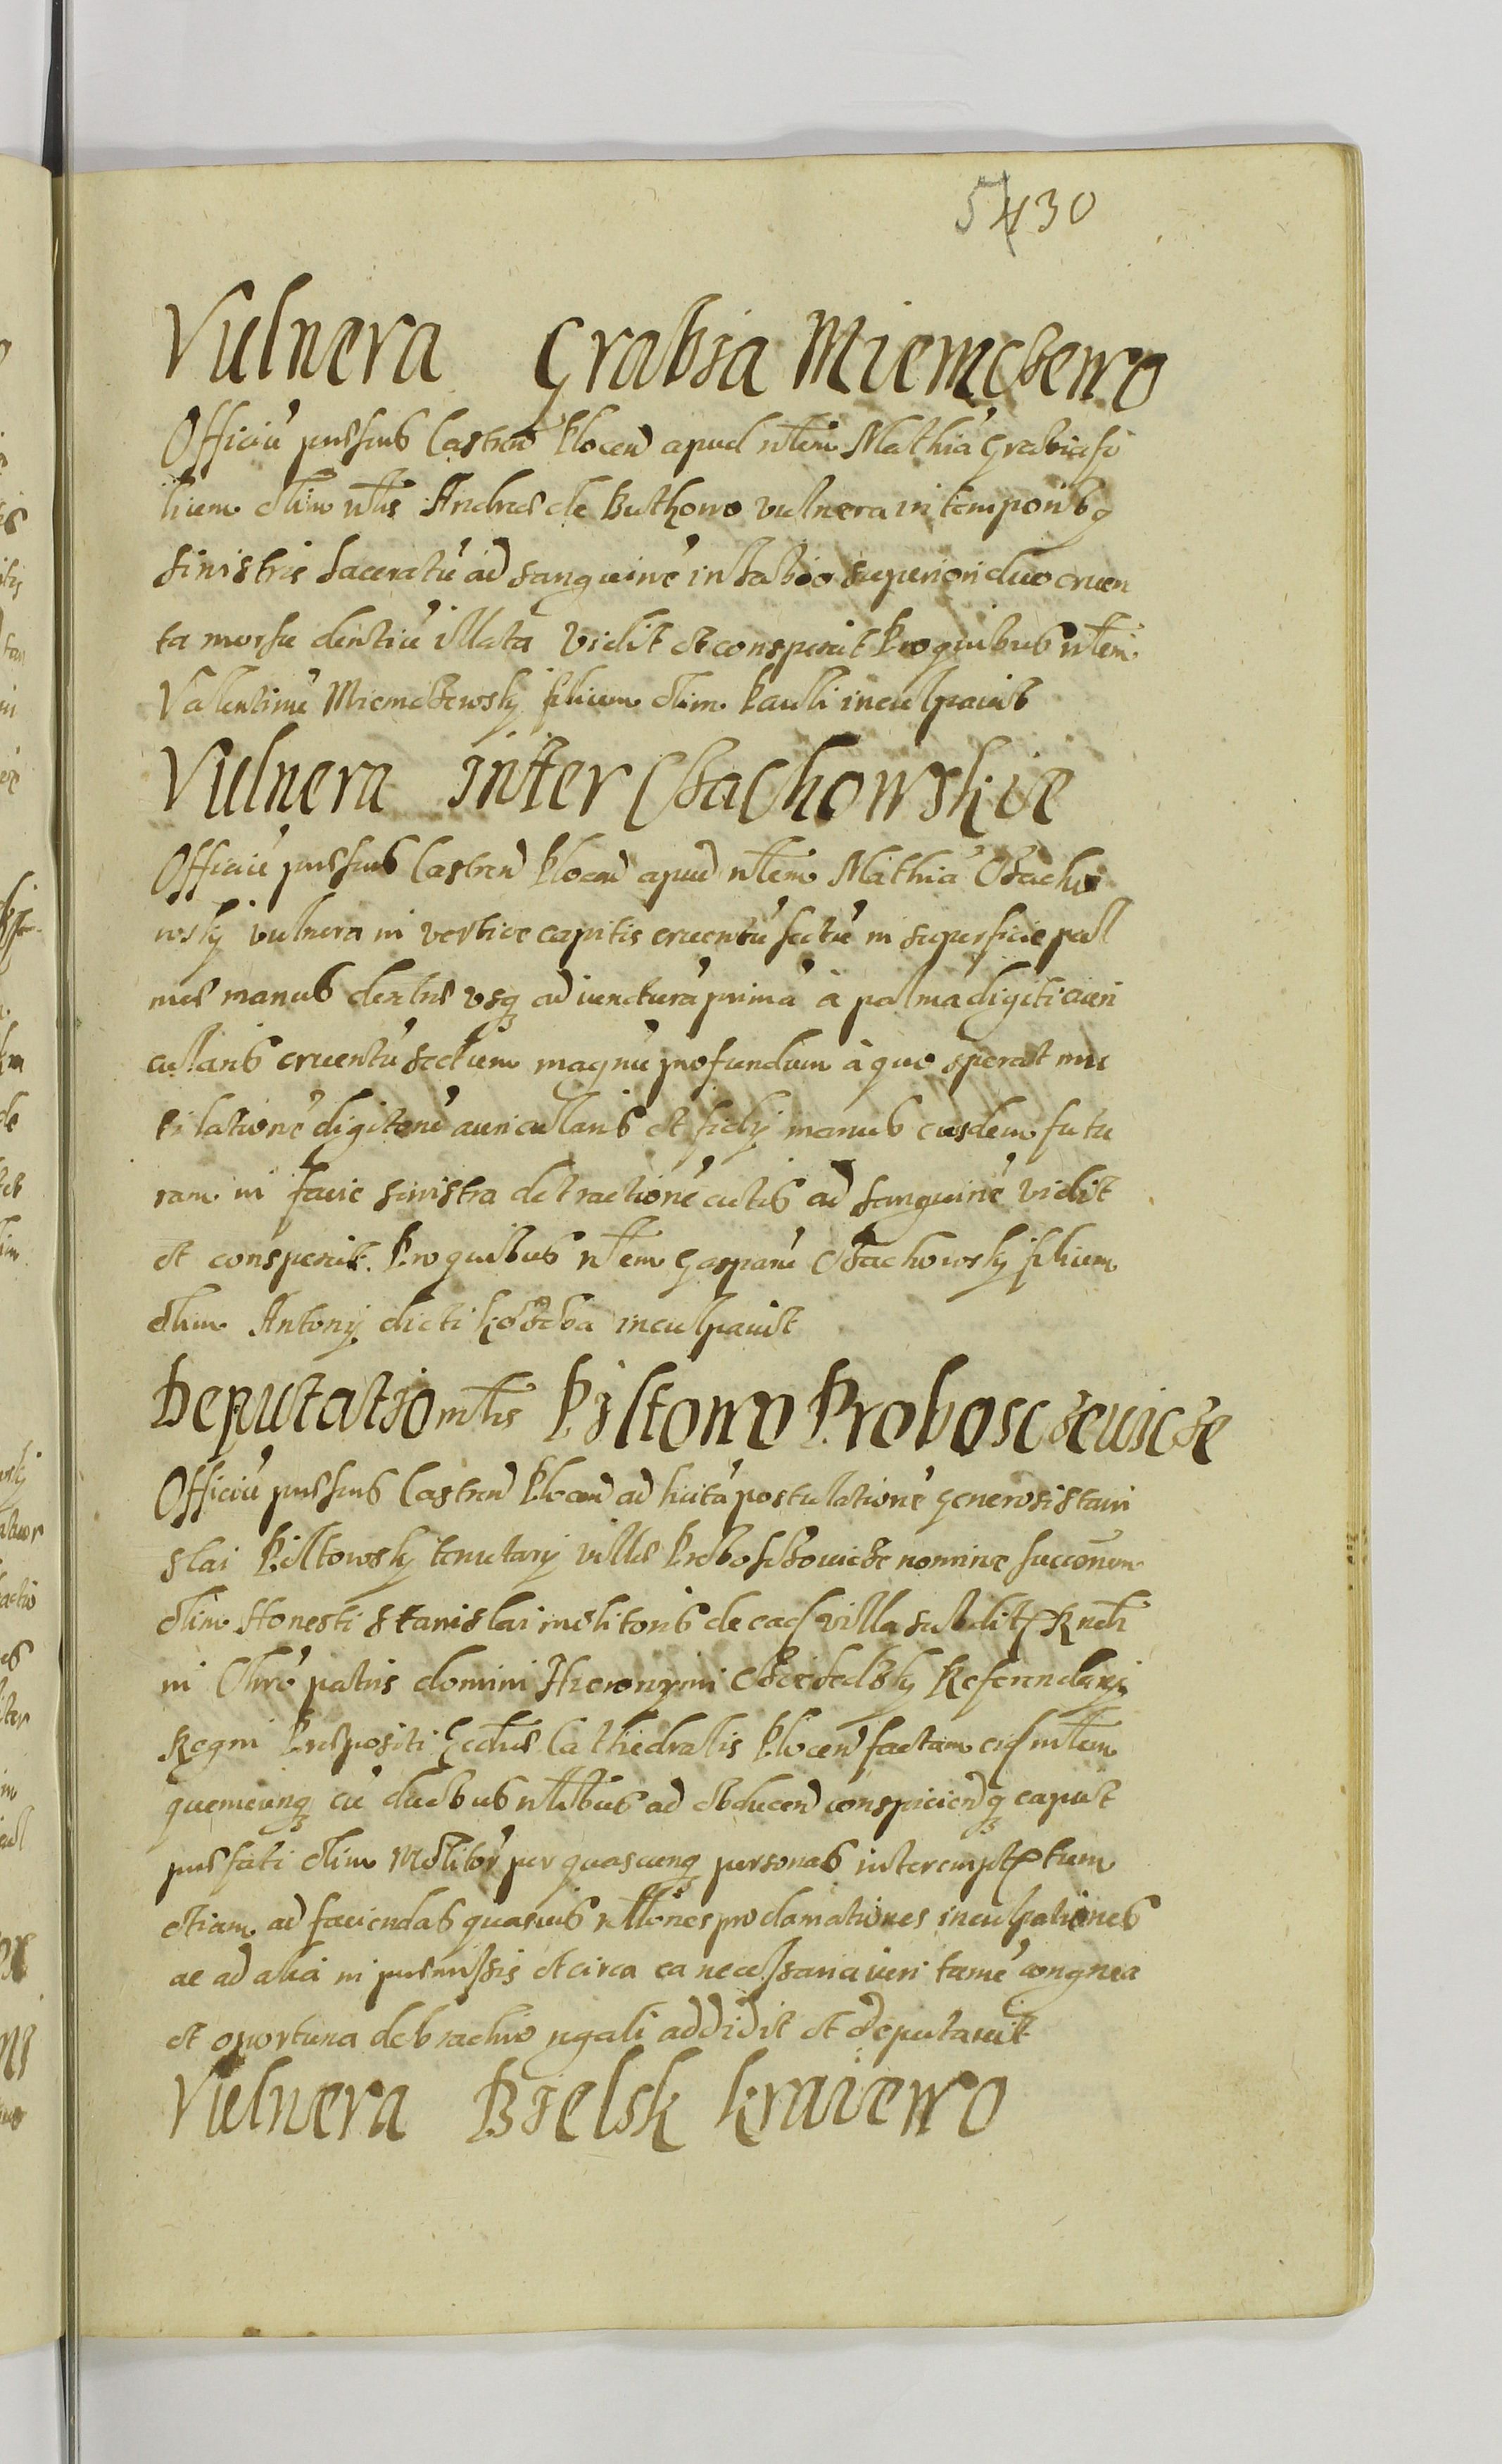 54 30
Vulnera Grabia Miemczewo
Officiū præsens Castreñ Ploceñ apud nłem Mathiā Grabia fi
lium olim nłis Andreæ de Buthowo vulnera in temporibq
sinistris laceratū ad sanguinē in labio superiori duo cruen
ta morsu dentiū illata vidit et conspexit Pro quibus nłem
Valentinū Miemczewsky filium olim Pauli inculpavit
Vulnera inter Czachowskie
Officiū præsens Castreñ Ploceñ apud nłem Mathiā Czacho
wsky vulnera in vertice capitis cruentū sectū in superficie pal
mæ manus dextræ vsq ad iuncturā primā à palma digiti auri
cularis cruentū sectum magnū profundum à quo sperat mu
tilationē digitorū auricularis et medij manus eiusdem futu
ram in facie sinistra detractionē cutis ad sanguinē vidit
et conspexit. Pro quibus nłem Gasparū Czachowsky filium
olim Antonij dicti inculpavit
Deputatio młis Piltowo Probosczewicze
Officiū præsens Castreñ Ploceñ ad licitā postulationē generosi Stani
slai Piltowsky tenutarij villæ Proboszczowicze nomine
olim Honesti Stanislai molitoris de ead villa subditi Rndi
in Chro patris domini Hieronymi Referendarij
Regni Præpositi Ecclīæ Cathedralis Ploceñ factam eid młem
quemcunq cū duobus nłibus ad obduceñ conspicienđq caput
præfati olim Molitor per quascunq personas interempti tum
etiam ad faciendas quasuis rłłiones proclamationes inculpationes
ac ad alia in præmissis et circa ea necessaria iuri tamē congrua
et oportuna de brachio regali addidit et deputavit
Vulnera Bielsk Kraiewo